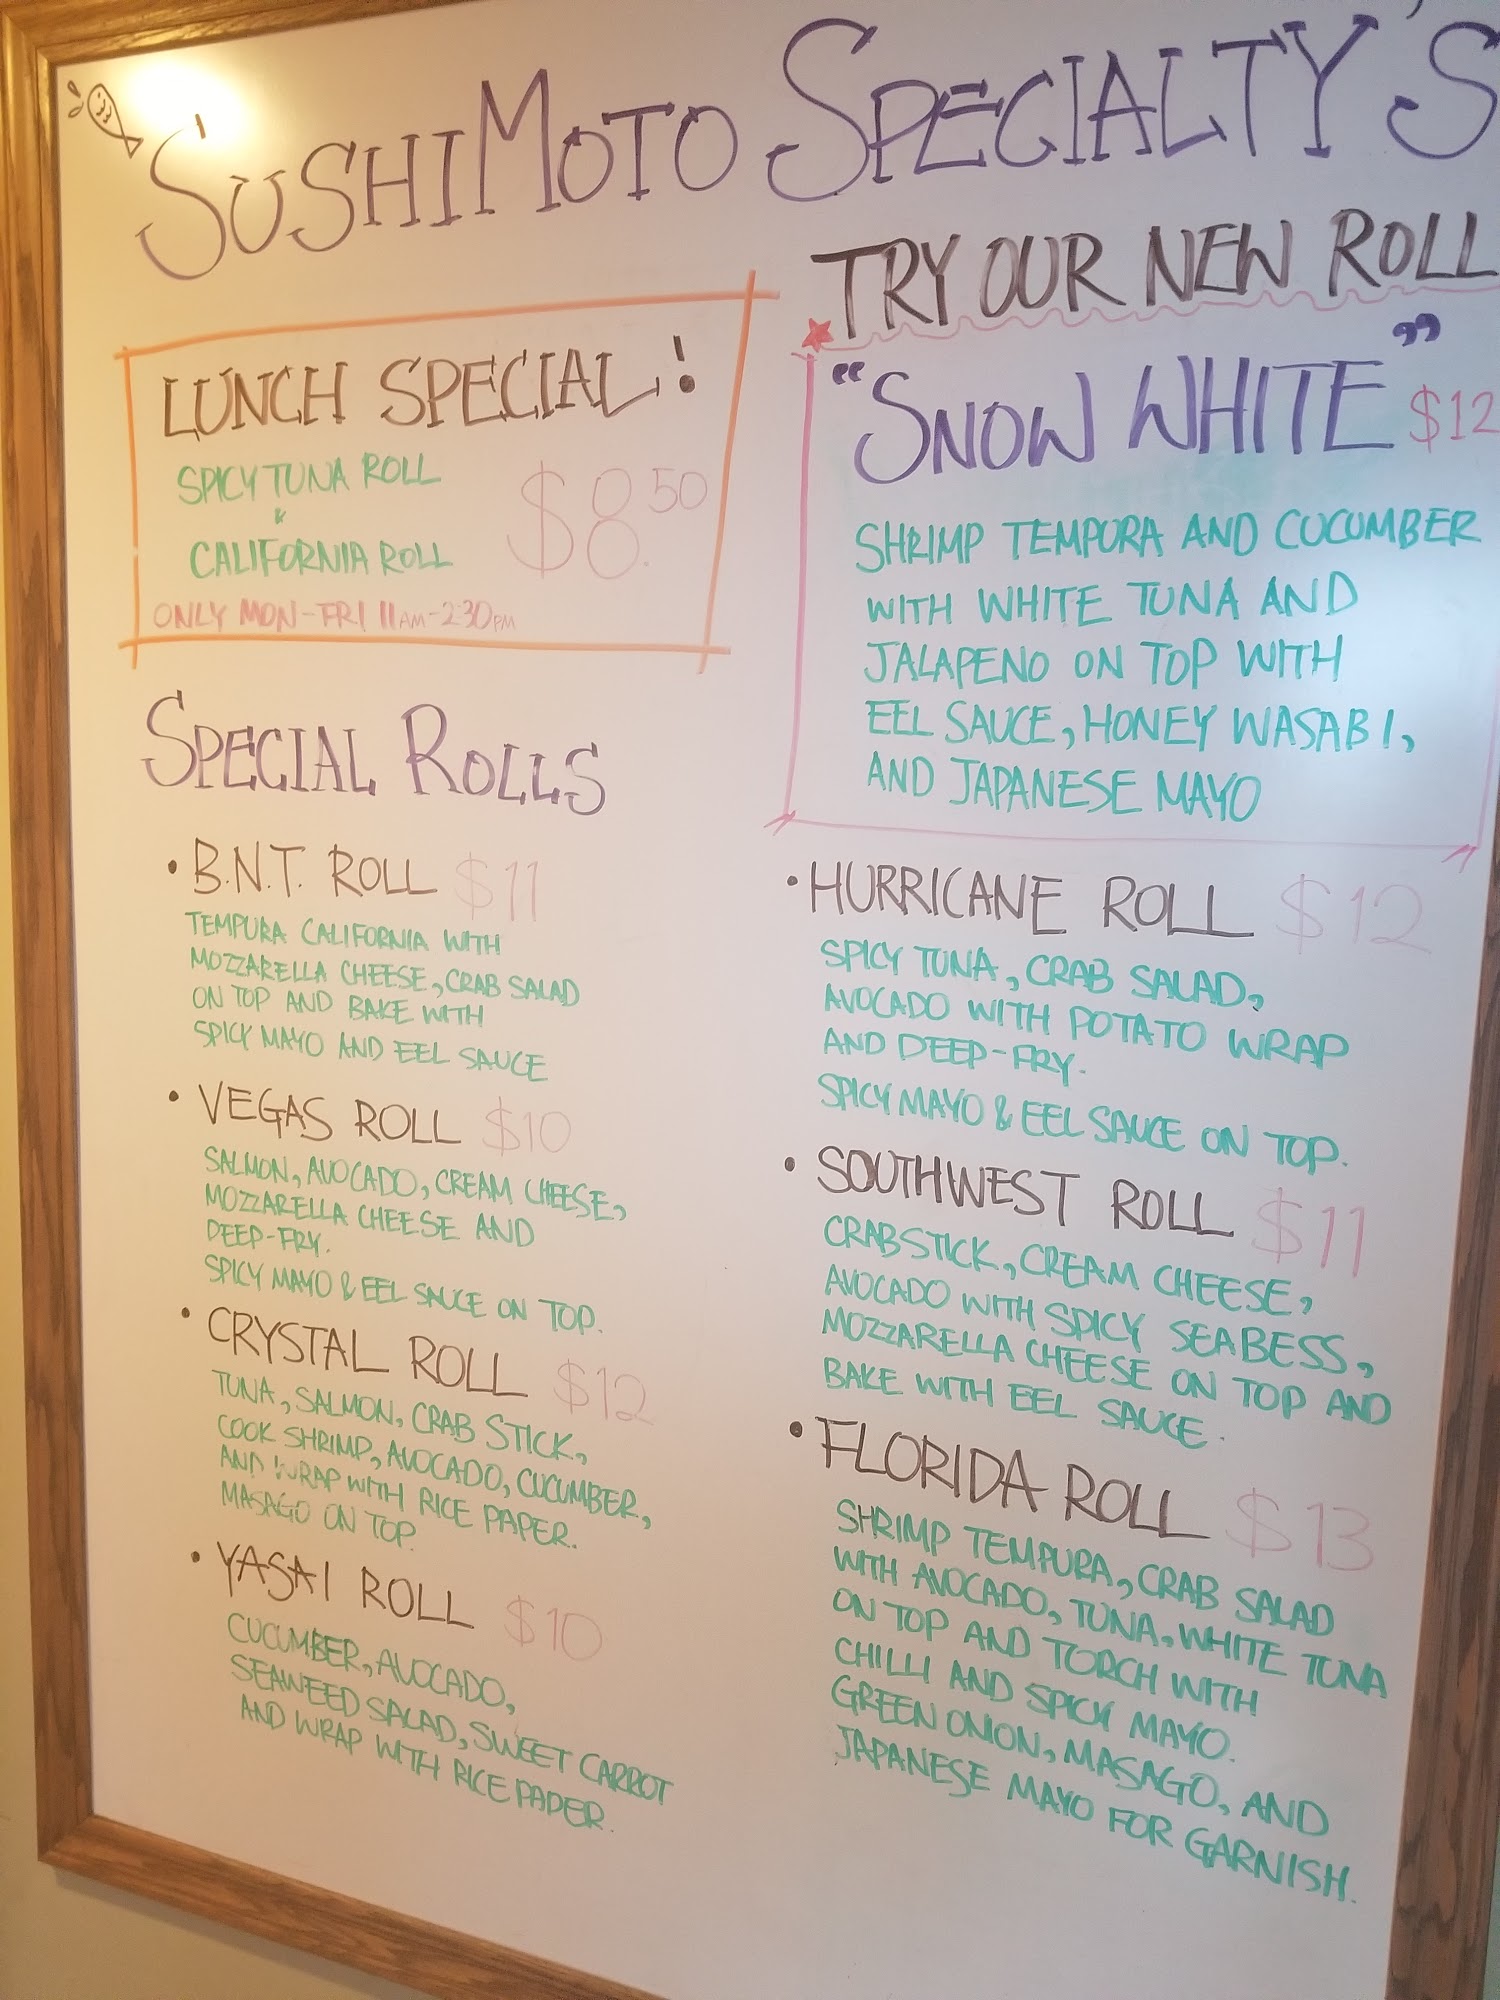 SUSHIMOTO SPECIALTY'S
LUNCH SPECIAL!
SPICY TUNA ROLL
&
CALIFORNIA ROLL
$8.50
ONLY MON-FRI 11AM-2:30PM
TRY OUR NEW ROLL
"SNOW WHITE" $12
SHRIMP TEMPURA AND CUCUMBER
WITH WHITE TUNA AND
JALAPENO ON TOP WITH
EEL SAUCE, HONEY WASABI,
AND JAPANESE MAYO
SPECIAL ROLLS
• B.N.T. ROLL $11
TEMPURA CALIFORNIA WITH
MOZZARELLA CHEESE, CRAB SALAD
ON TOP AND BAKE WITH
SPICY MAYO AND EEL SAUCE
• VEGAS ROLL $10
SALMON, AVOCADO, CREAM CHEESE,
MOZZARELLA CHEESE AND
DEEP-FRY.
SPICY MAYO & EEL SAUCE ON TOP.
• CRYSTAL ROLL $12
TUNA, SALMON, CRAB STICK,
COOK SHRIMP, AVOCADO, CUCUMBER,
AND WRAP WITH RICE PAPER.
MASAGO ON TOP.
• YASAI ROLL $10
CUCUMBER, AVOCADO,
SEAWEED SALAD, SWEET CARROT
AND WRAP WITH RICE PAPER.
• HURRICANE ROLL $12
SPICY TUNA, CRAB SALAD,
AVOCADO WITH POTATO WRAP
AND DEEP-FRY.
SPICY MAYO & EEL SAUCE ON TOP.
• SOUTHWEST ROLL $11
CRABSTICK, CREAM CHEESE,
AVOCADO WITH SPICY SEABESS,
MOZZARELLA CHEESE ON TOP AND
BAKE WITH EEL SAUCE.
• FLORIDA ROLL $13
SHRIMP TEMPURA, CRAB SALAD
WITH AVOCADO, TUNA, WHITE TUNA
ON TOP AND TORCH WITH
CHILLI AND SPICY MAYO.
GREEN ONION, MASAGO, AND
JAPANESE MAYO FOR GARNISH.